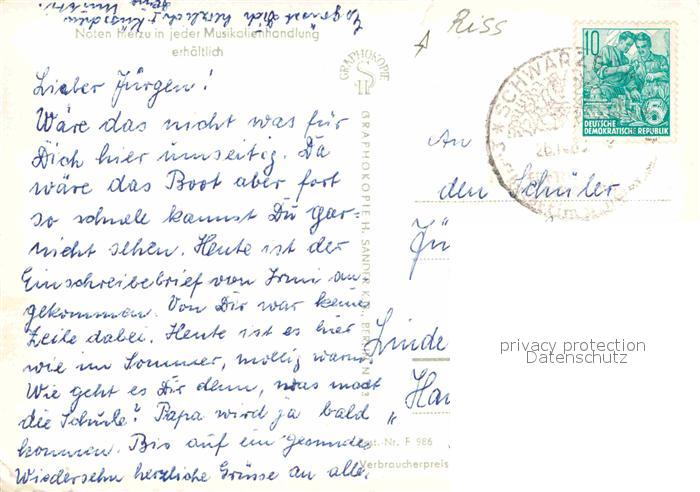 Es grüsst Dich herzlich & küsst Dich
Noten hierzu in jeder Musikalienhandlung
erhältlich
Lieber Jürgen!
Wäre das nicht was für
Dich hier umseitig. Da
wäre das Boot aber fort
so schnell kannst Du gar-
nicht sehen. Heute ist der
Einschreibebrief von Irmi an-
gekommen. Von Dir war keine
Zeile dabei. Heute ist es hier
wie im Sommer, mollig warm.
Wie geht es Dir denn, was macht
die Schule? Papa wird ja bald
kommen. Bis auf ein gesundes
Wiedersehn herzliche Grüsse an alle.
GRAPHOKOPIE
GRAPHOKOPIE H. SANDER K.G., BERLIN N 113
Riss
10
DEUTSCHE
DEMOKRATISCHE REPUBLIK
SCHWARZE
An
den Schüler
Jü
Linde
Ha
Best.-Nr. F 986
Verbraucherpreis
privacy protection
Datenschutz